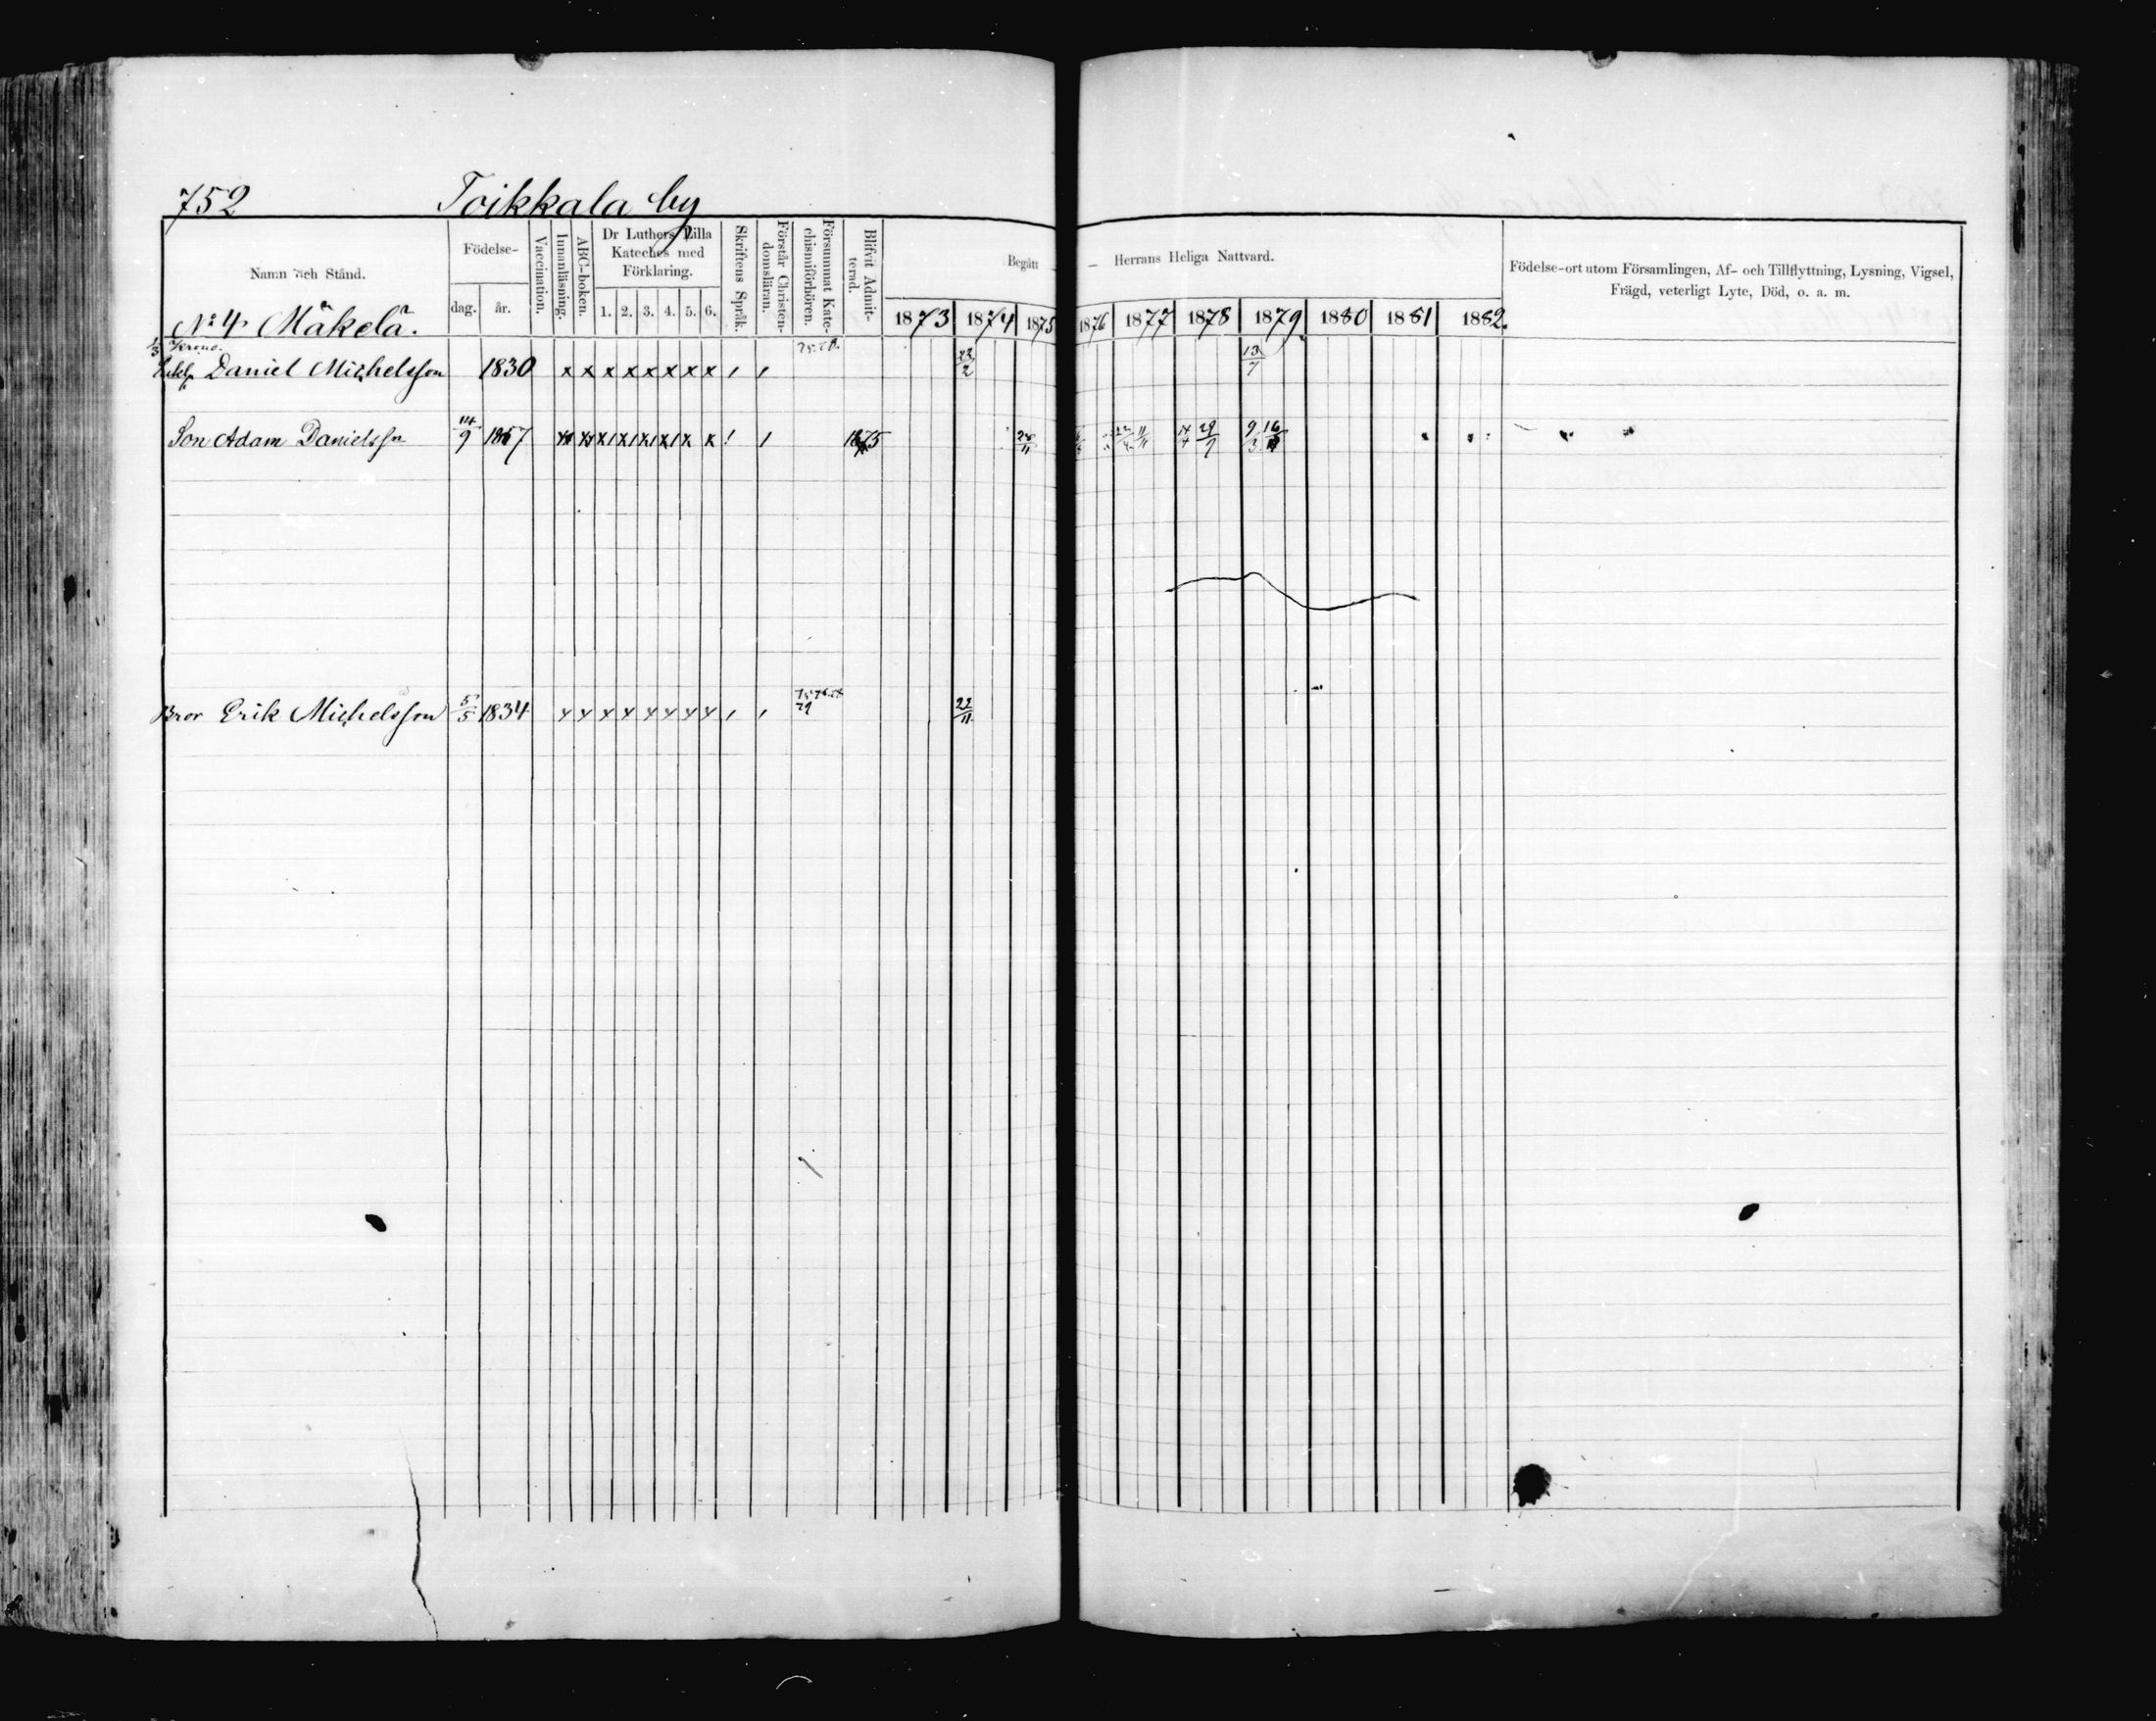 752 Toikkala by
Namn och Stånd. Födelse- dag. år. Vaccination. Innanläsning. ABC-boken. Dr Luthers Lilla Kateches med Förklaring. 1. 2. 3. 4. 5. 6. Skriftens Språk. Förstår Christendomsläran. Försummat Katechismiförhören. Blifvit Admitterad. Begått — Herrans Heliga Nattvard. 1873 1874 1875 1876 1877 1878 1879 1880 1881 1882. Födelse-ort utom Församlingen, Af- och Tillflyttning, Lysning, Vigsel, Frägd, veterligt Lyte, Död, o. a. m.
No 4. Mäkelä.
1/3 Krono.
Daniel Michelsson 1830 x x x x x x x x / / 22/2 13/7
Son Adam Danielss̄n 14/9 1857 x x x x x x x x ! / 1875 28/11 28/9 9/3
Bror Erik Michelsson 5/5 1834 x x x x x x x x / / 22/11